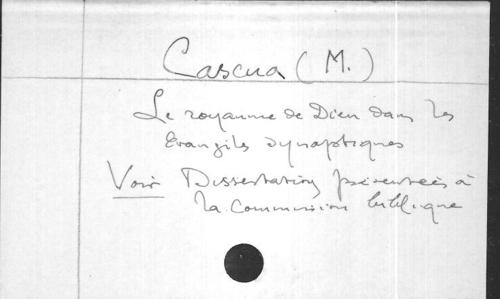 Cascua (M.)
Le royaume de Dieu dans les
Evangiles synoptiques
Voir Dissertations présentées à
la Commission biblique